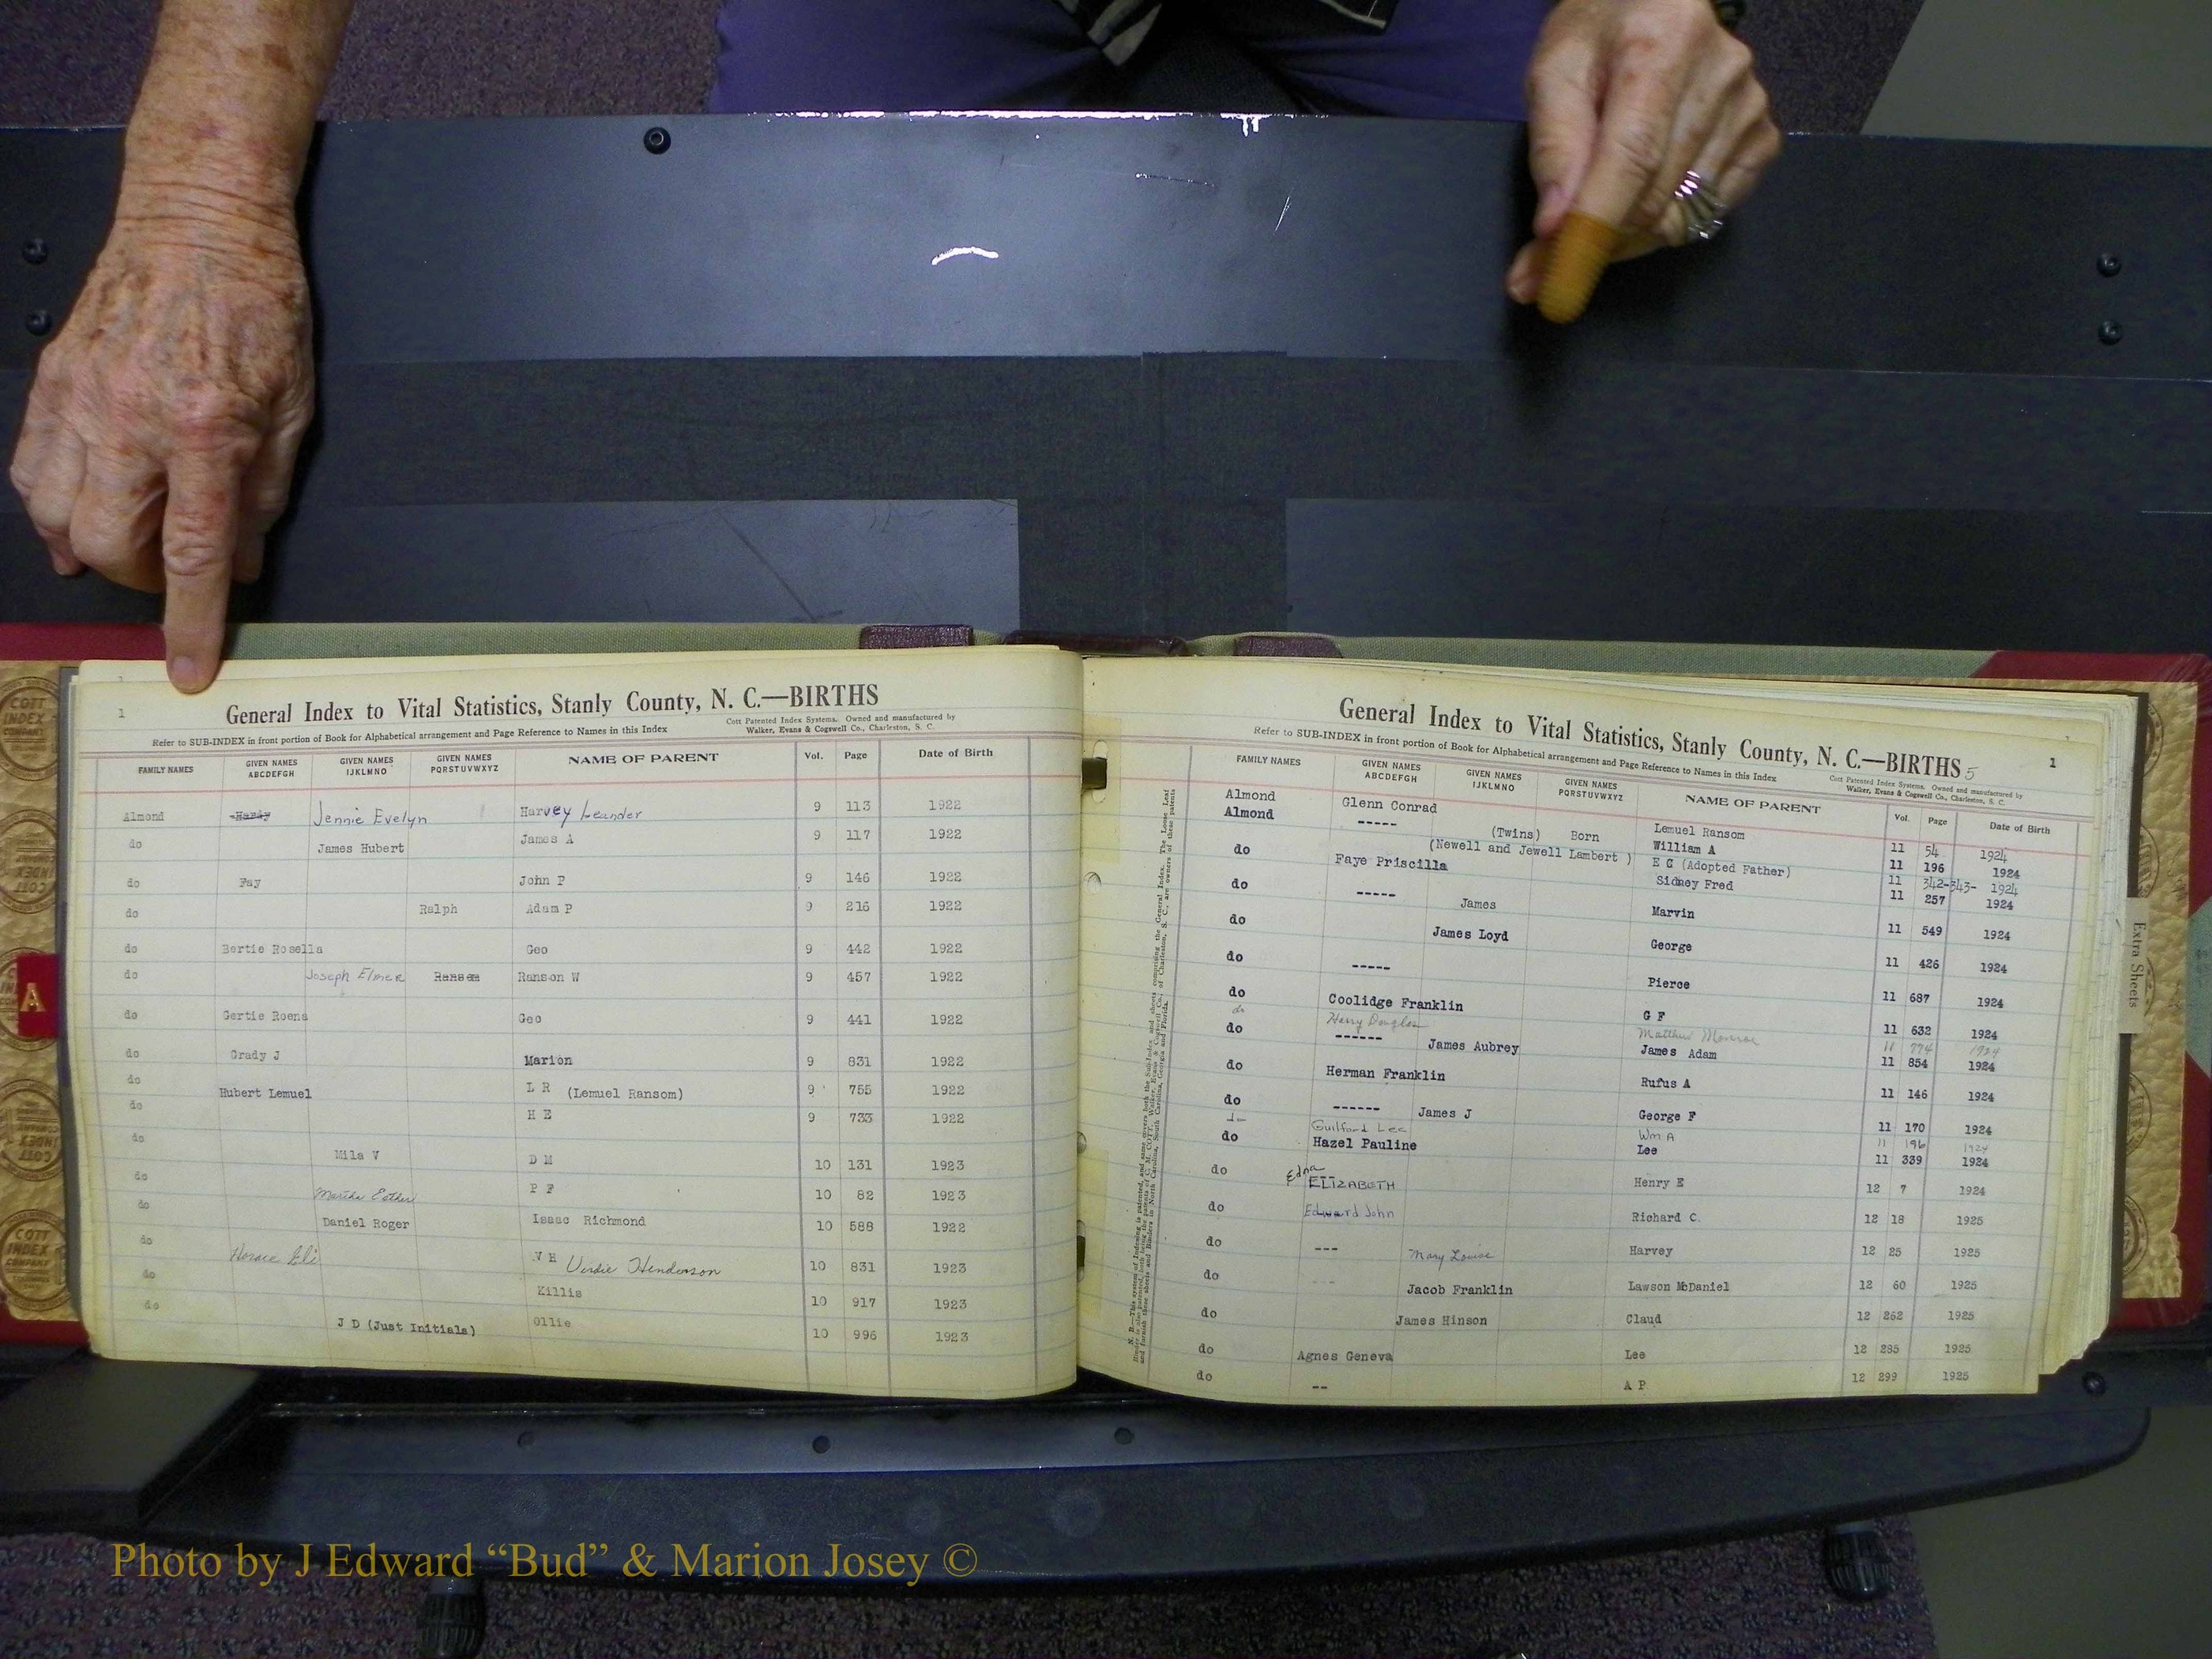 1
General Index to Vital Statistics, Stanly County, N. C.—BIRTHS
Refer to SUB-INDEX in front portion of Book for Alphabetical arrangement and Page Reference to Names in this Index
Cott Patented Index Systems. Owned and manufactured by
Walker, Evans & Cogswell Co., Charleston, S. C.
FAMILY NAMES GIVEN NAMES ABCDEFGH GIVEN NAMES IJKLMNO GIVEN NAMES PQRSTUVWXYZ NAME OF PARENT Vol. Page Date of Birth
Almond Hardy Jennie Evelyn Harvey Leander 9 113 1922
do James Hubert James A 9 117 1922
do Fay John P 9 146 1922
do Ralph Adam P 9 216 1922
do Bertie Rosella Geo 9 442 1922
do Joseph Elmer Ransom Ranson W 9 457 1922
do Gertie Roena Geo 9 441 1922
do Grady J Marion 9 831 1922
do Hubert Lemuel L R (Lemuel Ransom) 9 755 1922
do H E 9 733 1922
do Mila V D M 10 131 1923
do Martha Esther P F 10 82 1923
do Daniel Roger Isaac Richmond 10 588 1922
do Horace Eli V H Verdie Henderson 10 831 1923
do Killis 10 917 1923
do J D (Just Initials) Ollie 10 996 1923
A
General Index to Vital Statistics, Stanly County, N. C.—BIRTHS 5
1
Refer to SUB-INDEX in front portion of Book for Alphabetical arrangement and Page Reference to Names in this Index
Cott Patented Index Systems. Owned and manufactured by
Walker, Evans & Cogswell Co., Charleston, S. C.
FAMILY NAMES GIVEN NAMES ABCDEFGH GIVEN NAMES IJKLMNO GIVEN NAMES PQRSTUVWXYZ NAME OF PARENT Vol. Page Date of Birth
Almond Glenn Conrad Lemuel Ransom 11 54 1924
Almond ----- William A 11 196 1924
(Twins) Born
(Newell and Jewell Lambert ) E G (Adopted Father) 11 342-343- 1924
do Faye Priscilla Sidney Fred 11 257 1924
do ----- James Marvin 11 549 1924
do James Loyd George 11 426 1924
do ----- Pierce 11 687 1924
do Coolidge Franklin G F 11 632 1924
do Harry Douglas Matthew Monroe 11 774 1924
do ------ James Aubrey James Adam 11 854 1924
do Herman Franklin Rufus A 11 146 1924
do ------ James J George F 11 170 1924
do Guilford Lee Wm A 11 196 1924
do Hazel Pauline Lee 11 339 1924
do Edna ELIZABETH Henry E 12 7 1924
do Edward John Richard C. 12 18 1925
do --- Mary Louise Harvey 12 25 1925
do --- Jacob Franklin Lawson McDaniel 12 60 1925
do James Hinson Claud 12 262 1925
do Agnes Geneva Lee 12 285 1925
do -- A P 12 299 1925
Extra Sheets
COTT
INDEX
COMPANY
Photo by J Edward “Bud” & Marion Josey ©